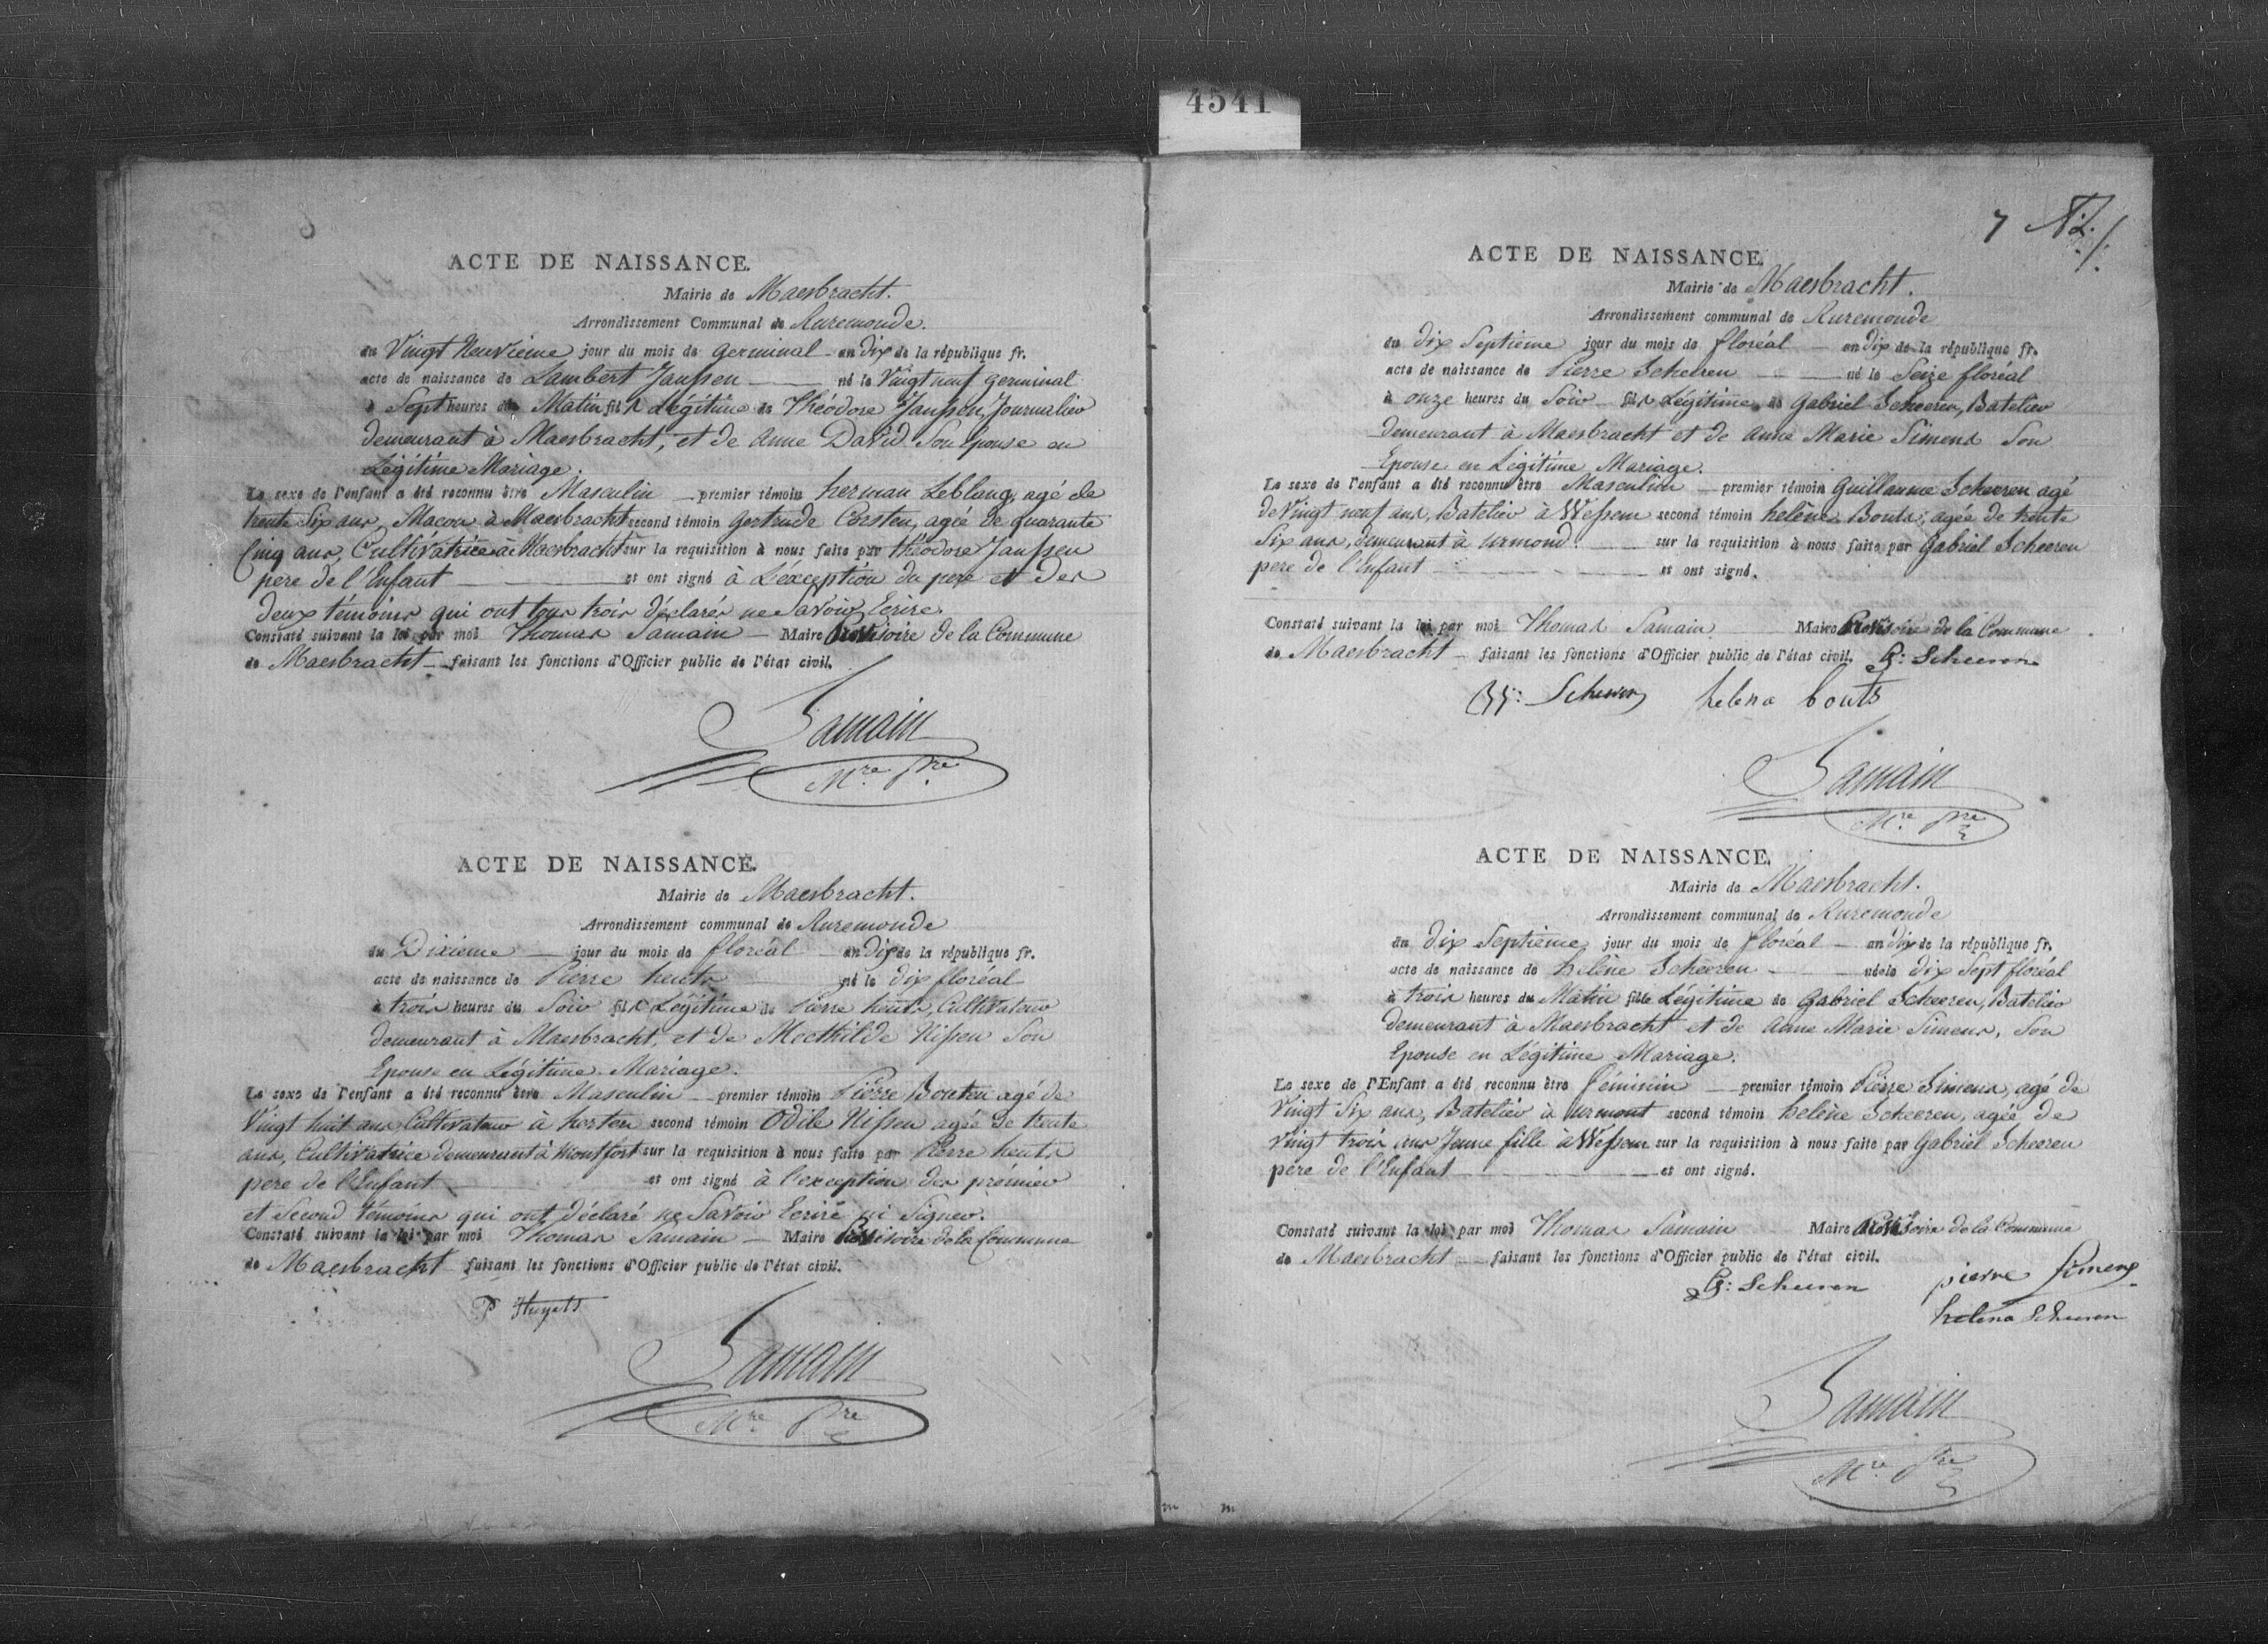 4541
ACTE DE NAISSANCE.
Mairie de Maesbracht.
Arrondissement Communal de Ruremonde.
du Vingt Neuvième jour du mois de Germinal an Dix de la république fr.
acte de naissance de Lambert Janssen né le Vingt neuf Germinal
à Sept heures du Matin fils Légitime de Théodore Janssen, Journalier
demeurant à Maesbracht, et de Anne David Son Epouse en
Légitime Mariage.
Le sexe de l'enfant a été reconnu être Masculin premier témoin herman Leblanq, agé de
trente Six ans, Macon à Maesbracht second témoin Gertrude Corsten, agée de quarante
Cinq ans, Cultivatrice à Maesbracht sur la requisition à nous faite par théodore Janssen
pere de l'Enfant et ont signé à L'éxception du pere et des
deux témoins qui ont tous trois déclarés ne Savoir Ecrire.
Constaté suivant la loi par moi Thomas Samain Maire Provisoire de la Commune
de Maesbracht faisant les fonctions d'Officier public de l'état civil.
Samain
Mre Pre
ACTE DE NAISSANCE.
Mairie de Maesbracht.
Arrondissement communal de Ruremonde
du Dixieme jour du mois de floréal an Dix de la république fr.
acte de naissance de Pierre heuts né le dix floréal
à trois heures du Soir fils Légitime de Pierre heuts, Cultivateur
demeurant à Maesbracht, et de Mecthilde Nissen Son
Epouse en Légitime Mariage.
Le sexe de l'enfant a été reconnu être Masculin premier témoin Pierre Bouten agé de
Vingt huit ans Cultivateur à horten second témoin Odile Nissen agée de trente
ans, Cultivatrice demeurant à Montfort sur la requisition à nous faite par Pierre heuts
pere de l'Enfant et ont signé à l'exception des prémier
et Second témoins qui ont déclaré ne Savoir Ecrire ni Signer.
Constaté suivant la loi par moi Thomas Samain Maire Provisoire de la Commune
de Maesbracht faisant les fonctions d'Officier public de l'état civil.
P Huyets
Samain
Mre Pre
7
ACTE DE NAISSANCE.
Mairie de Maesbracht.
Arrondissement communal de Ruremonde
du dix Septieme jour du mois de floréal an dix de la république fr.
acte de naissance de Pierre Scheeren né le Seize floréal
à onze heures du Soir fils Légitime de Gabriel Scheeren, Batelier
demeurant à Maesbracht et de Anne Marie Simens Son
Epouse en Légitime Mariage.
Le sexe de l'enfant a été reconnu être Masculin premier témoin Guillaume Scheeren agé
de Vingt neuf ans, Batelier à Wessem second témoin helène Bouts, agée de trente
Six ans, demeurant à Urmond. sur la requisition à nous faite par Gabriel Scheeren
pere de l'Enfant et ont signé.
Constaté suivant la loi par moi Thomas Samain Maire Provisoire de la Commune
de Maesbracht faisant les fonctions d'Officier public de l'état civil. G: Scheeren
W: Scheeren helena bouts
Samain
Mre Pre
ACTE DE NAISSANCE.
Mairie de Maesbracht.
Arrondissement communal de Ruremonde
du dix Septieme jour du mois de floréal an dix de la république fr.
acte de naissance de helène Scheeren née le dix Sept floréal
à trois heures du Matin fille Légitime de Gabriel Scheeren, Batelier
demeurant à Maesbracht et de Anne Marie Simens, Son
Epouse en Légitime Mariage.
Le sexe de l'Enfant a été reconnu être féminin premier témoin Pierre Simens, agé de
Vingt Six ans, Batelier à Urmont second témoin helène Scheeren, agée de
Vingt trois ans Jeune fille à Wessem sur la requisition à nous faite par Gabriel Scheeren
père de l'Enfant et ont signé.
Constaté suivant la loi par moi Thomas Samain Maire Provisoire de la Commune
de Maesbracht faisant les fonctions d'Officier public de l'état civil.
G: Scheeren pierre Simens
helena Scheeren
Samain
Mre Pre